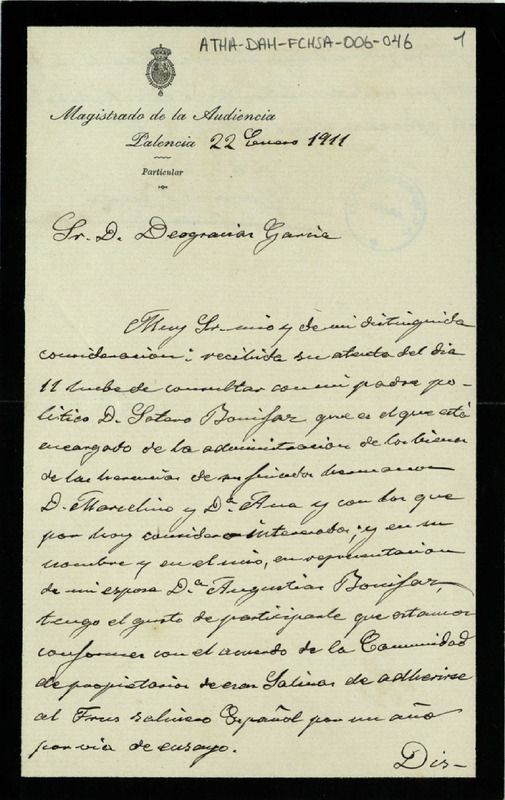 ATHA-DAH-FCHSA-006-046
1
Magistrado de la Audiencia
Palencia 22 Enero 1911
Particular
Sr. D. Deogracias García
Muy Sr. mio y de mi distinguida
consideración: recibida su atenta del dia
11 hube de consultar con mi padre po-
lítico D. Sotero Bonifaz que es el que está
encargado de la administración de los bienes
de las herencias de sus finados hermanos
D. Marcelino y Dª. Ana y con los que
por hoy considero interesados; y en su
nombre y en el mio, en representación
de mi esposa D.ª Angustias Bonifaz,
tengo el gusto de participarle que estamos
conformes con el acuerdo de la Comunidad
de propietarios de esas Salinas de adherirse
al Trus salinero Español por un año
por via de ensayo.
Dis-